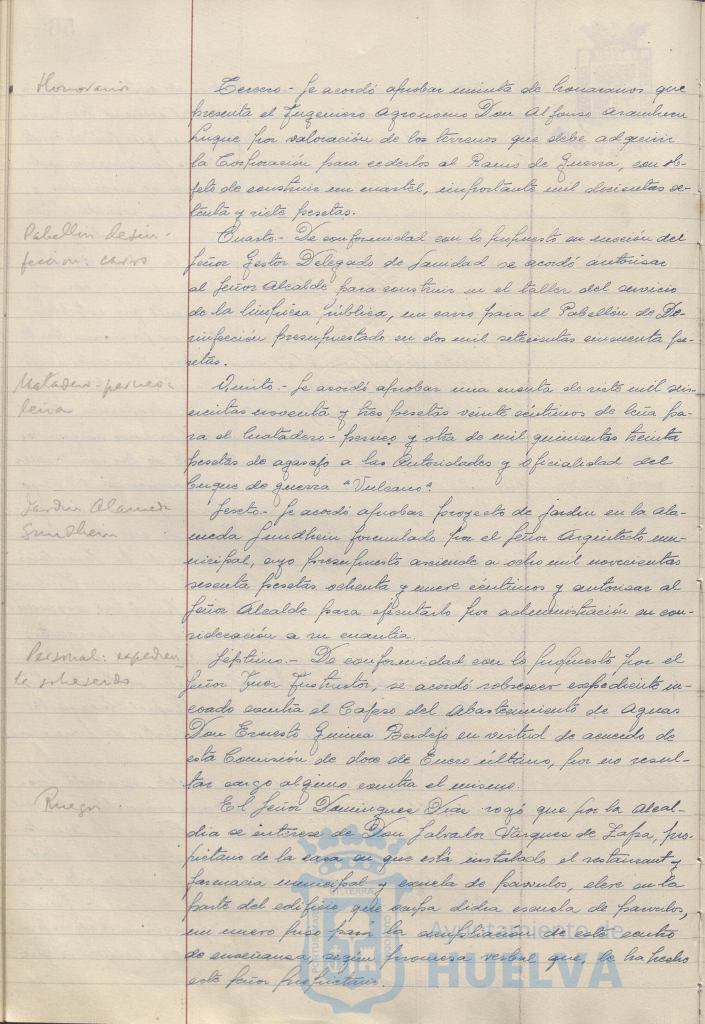 Honorarios
Tercero.- Se acordó aprobar minuta de honorarios que
presenta el Ingeniero Agronomo Don Alfonso Aramburu
Luque por valoración de los terrenos que debe adquirir
la Corporación para cederlos al Ramo de Guerra, con ob-
jeto de construir un cuartel, importante mil doscientas se-
tenta y siete pesetas.
Pabellón desin-
fección: carro
Cuarto.- De conformidad con lo propuesto en moción del
Señor Gestor Delegado de Sanidad se acordó autorizar
al Señor Alcalde para construir en el taller del servicio
de la limpieza pública, un carro para el Pabellón de De-
sinfección presupuestado en dos mil setecientas cincuenta pe-
setas.
Matadero-perneo:
leña
Quinto.- Se acordó aprobar una cuenta de siete mil seis-
cientas noventa y tres pesetas veinte centimos de leña pa-
ra el Matadero-perneo y otra de mil quinientas treinta
pesetas de agasajo a las Autoridades y Oficialidad del
buque de guerra "Vulcano".
Jardin Alameda
Sundheim
Sexto.- Se acordó aprobar proyecto de jardin en la Ala-
meda Sundheim formulado por el Señor Arquitecto mu-
nicipal, cuyo presupuesto asciende a ocho mil novecientas
sesenta pesetas ochenta y nueve centimos y autorizar al
Señor Alcalde para ejecutarlo por administración en con-
sideración a su cuantia.
Personal: expedien-
te sobreseido
Séptimo.- De conformidad con lo propuesto por el
Señor Juez Instructor, se acordó sobreseer expediente in-
coado contra el Capataz del Abastecimiento de Aguas
Don Ernesto Guinea Berdejo en virtud de acuerdo de
esta Comisión de doce de Enero último, por no resul-
tar cargo alguno contra el mismo.
Ruegos
El Señor Dominguez Diaz rogó que por la Alcal-
dia se interese de Don Salvador Vazquez de Zafra, pro-
pietario de la casa en que está instalado el restaurant y
farmacia municipal y escuela de parvulos, eleve en la
parte del edificio que ocupa dicha escuela de parvulos,
un nuevo piso para la ampliación de este centro
de enseñanza, según promesa verbal que le ha hecho
este Señor propietario.
Ayuntamiento de
HUELVA